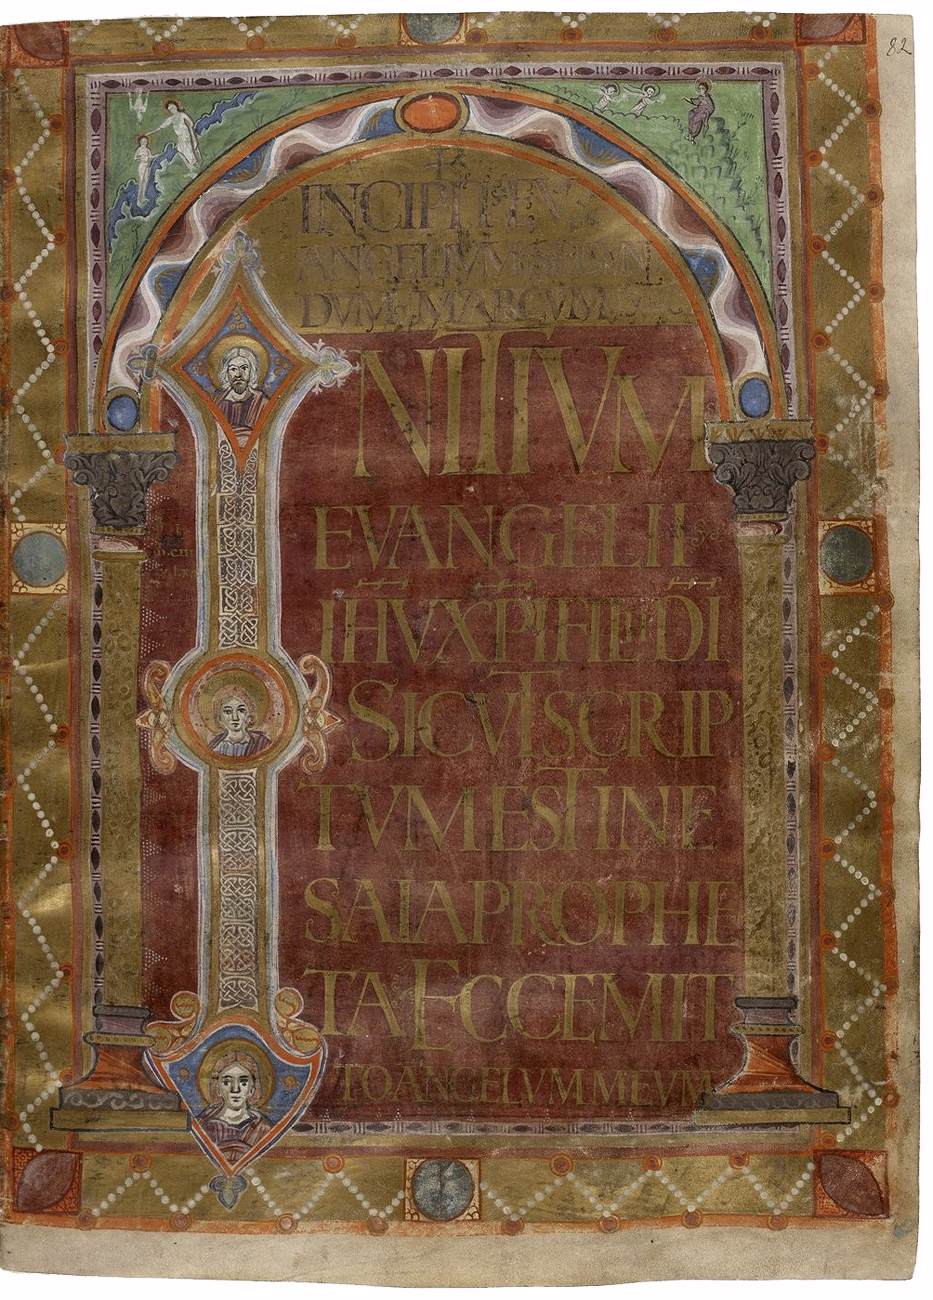 82
INCIPIT EV
ANGELIVM SECVN
DVM MARCVM
INITIVM
EVANGELII
IHV XPI FILII DI
SICVT SCRIP
TVM EST IN E
SAIA PROPHE
TA ECCE MIT
TO ANGELVM MEVM